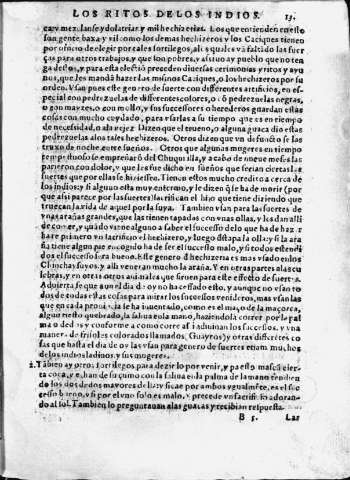 LOS RITOS DE LOS INDIOS. 13.
car, y mezclanse ydolatrias y mil hechizerias. Los que entienden en esto
son gente baxa y vil como los demas hechizeros y los Caziques tienen
por oficio de elegir por tales sortilegos, a los quales va faltado las fuer
ças para otros trabajos, y que son pobres, y assi no ay pueblo que no ten
ga destos, y para esta elecció preceden diuersas cerimonias y ritos y ayu
nos, que les mandã hazer los mismos Caziques, o los hechizeros por su
orden. Vsan pues este genero de suerte con differentes artificios, en es-
pecial con pedrezuelas de differentes colores, o có pedrezuelas negras,
o con mayzes, o con mollo, y sus successores o herederos guardan estas
cosas con mucho cuydado, para vsarlas a su tiempo que es en tiempo
de necessidad, o a la vejez. Dizen que el trueno, o alguna guaca dio estas
pedrezuelas a los tales hechizeros. Otros dizen que vn defuncto se las
truxo de noche entre sueños. Otros que algunas mugeres en tiempo
tempestuoso se empreñaró del Chuquilla, y a cabo de nueue meses las
parieron con dolor, y que les fue dicho en sueños que serian ciertas las
suertes que por ellas se hiziessen. Tienen estos mucho credito a cerca de
los indios: y si alguno esta muy enfermo, y le dizen q̃ se ha de morir (por
que assi parece por las suertes) sacrifican el hijo que tiene diziendo que
truecan la vida de aquel por la suya. Tambien vsan para las suertes de
vnas arañas grandes, que las tienen tapadas con vnas ollas, y les dan alli
de comer, y quádo viene alguno a saber el successo de lo que ha de hazer
haze primero vn sacrificio el hechizero, y luego destapa la olla: y si la ara
ña tiene algun pie encogido ha de ser el successo malo, y si todos estendi
dos el successo sera bueno. Este genero d hechizeria es mas vsado en los
Chinchaysuyos, y alli veneran mucho la araña. Y en otras partes las cu
lebras, y en otras otros animales que siruen para este effecto de suertes.
Aduierta se que aun el dia de oy no ha cessado esto, y aunque no vsan to
dos de todas estas cosas para mirar los sucessos venideros, mas vsan las
que en cada prouincia se ha inuentado, como es el maiz, o de la maçorca,
algun tiesto quebrado, la saliua en la mano, haziendola correr por la pal
ma o dedos y conforme a como corre assi adiuinan los successos, y vna
manera de frisoles colorados llamados, Guayros) y otras differẽtes co
sas que hasta el dia de oy las vsan para genero de suertes estan muchos
de los indios ladinos, y sus mugeres.
2. Tãbien ay otros sortilegos para dezir lo por venir, y para esto mascã cier
ta coca, y echan de su çumo con la saliua en la palma de la mano tendien
do los dos dedos mayores de ella y si cae por ambos ygualmẽte, es el suc
cesso bueno, y si por el vno solo es malo, y precede vn sacrificio adoran-
do al Sol. Tambien lo preguntauan a las guacas y recibian respuesta.
B 5. Las